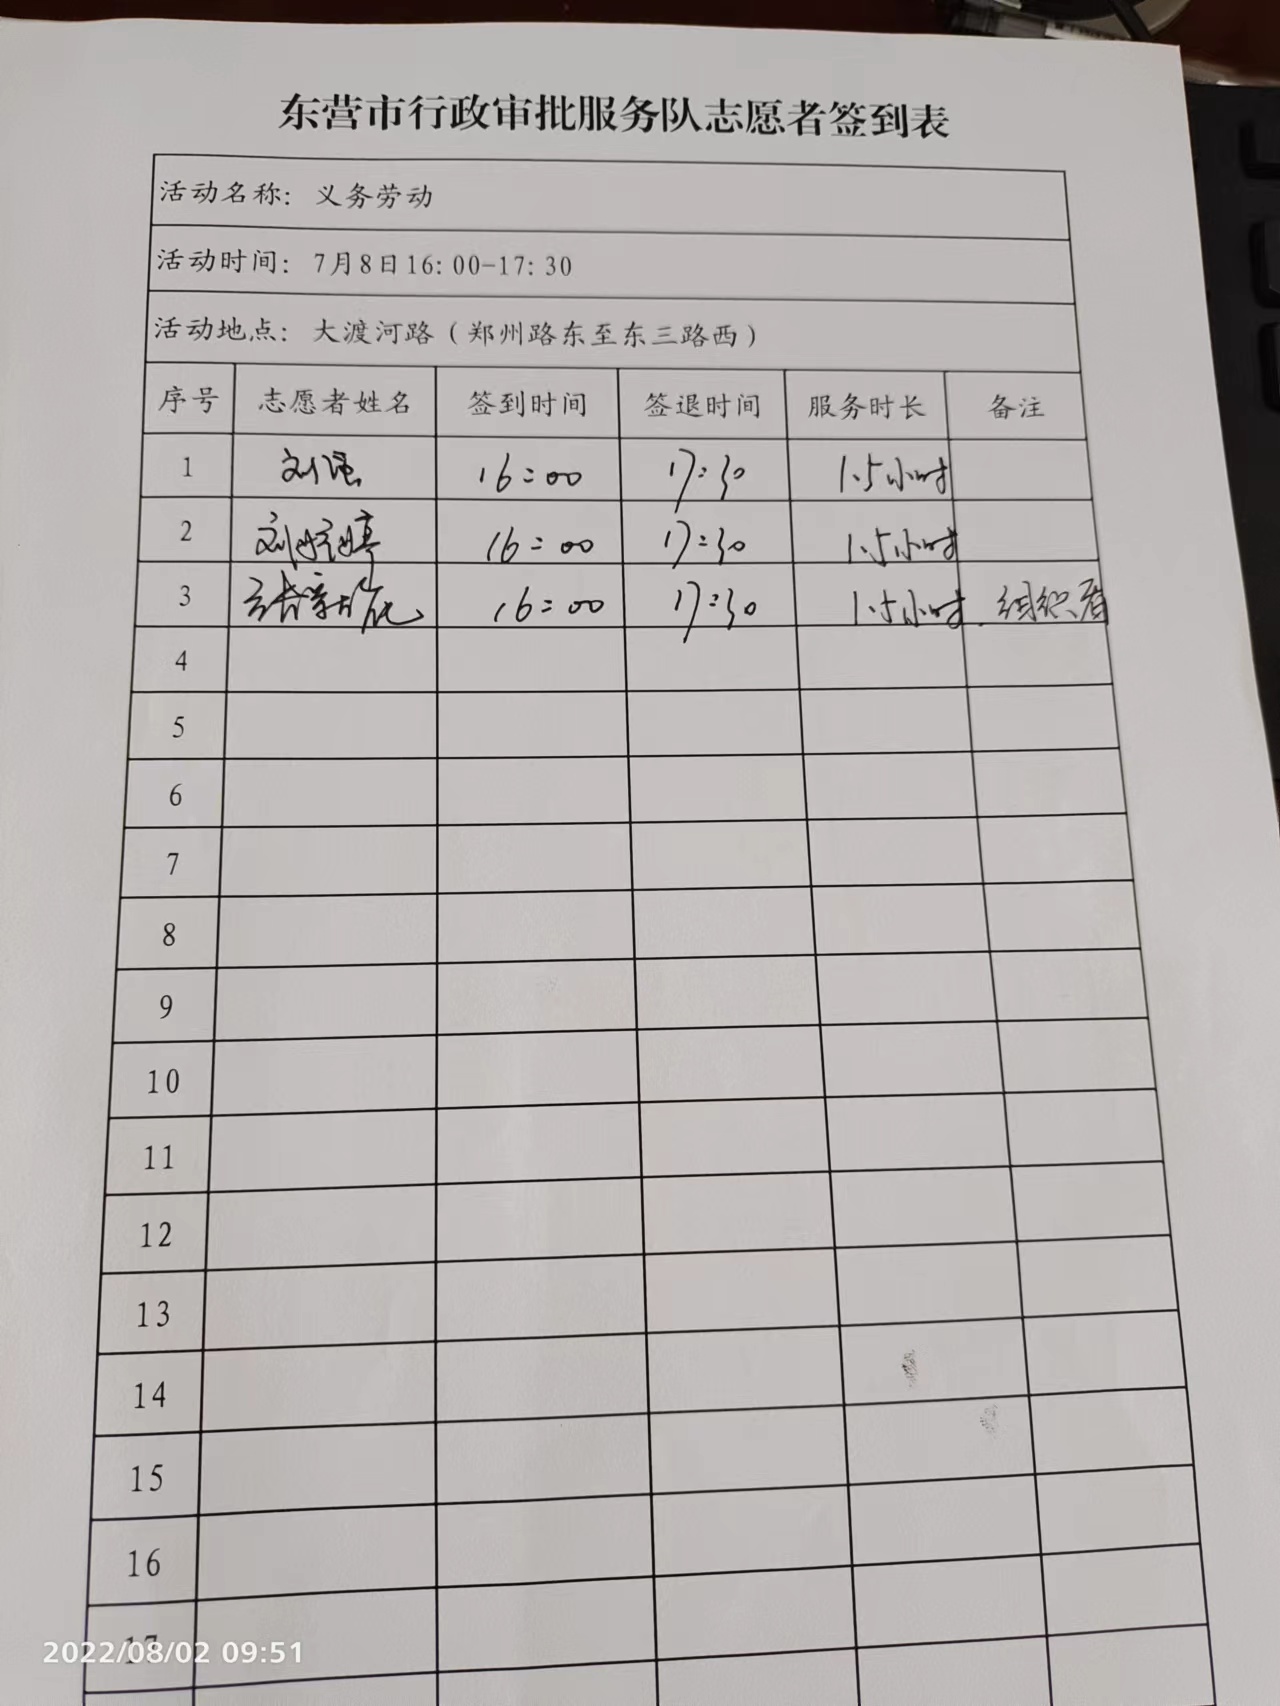 东营市行政审批服务队志愿者签到表
活动名称：义务劳动
活动时间：7月8日16：00-17：30
活动地点：大渡河路（郑州路东至东三路西）
序号 志愿者姓名 签到时间 签退时间 服务时长 备注
1 刘强 16:00 17:30 1.5小时
2 刘婷婷 16:00 17:30 1.5小时
3 16:00 17:30 1.5小时 组织者
4
5
6
7
8
9
10
11
12
13
14
15
16
17
2022/08/02 09:51